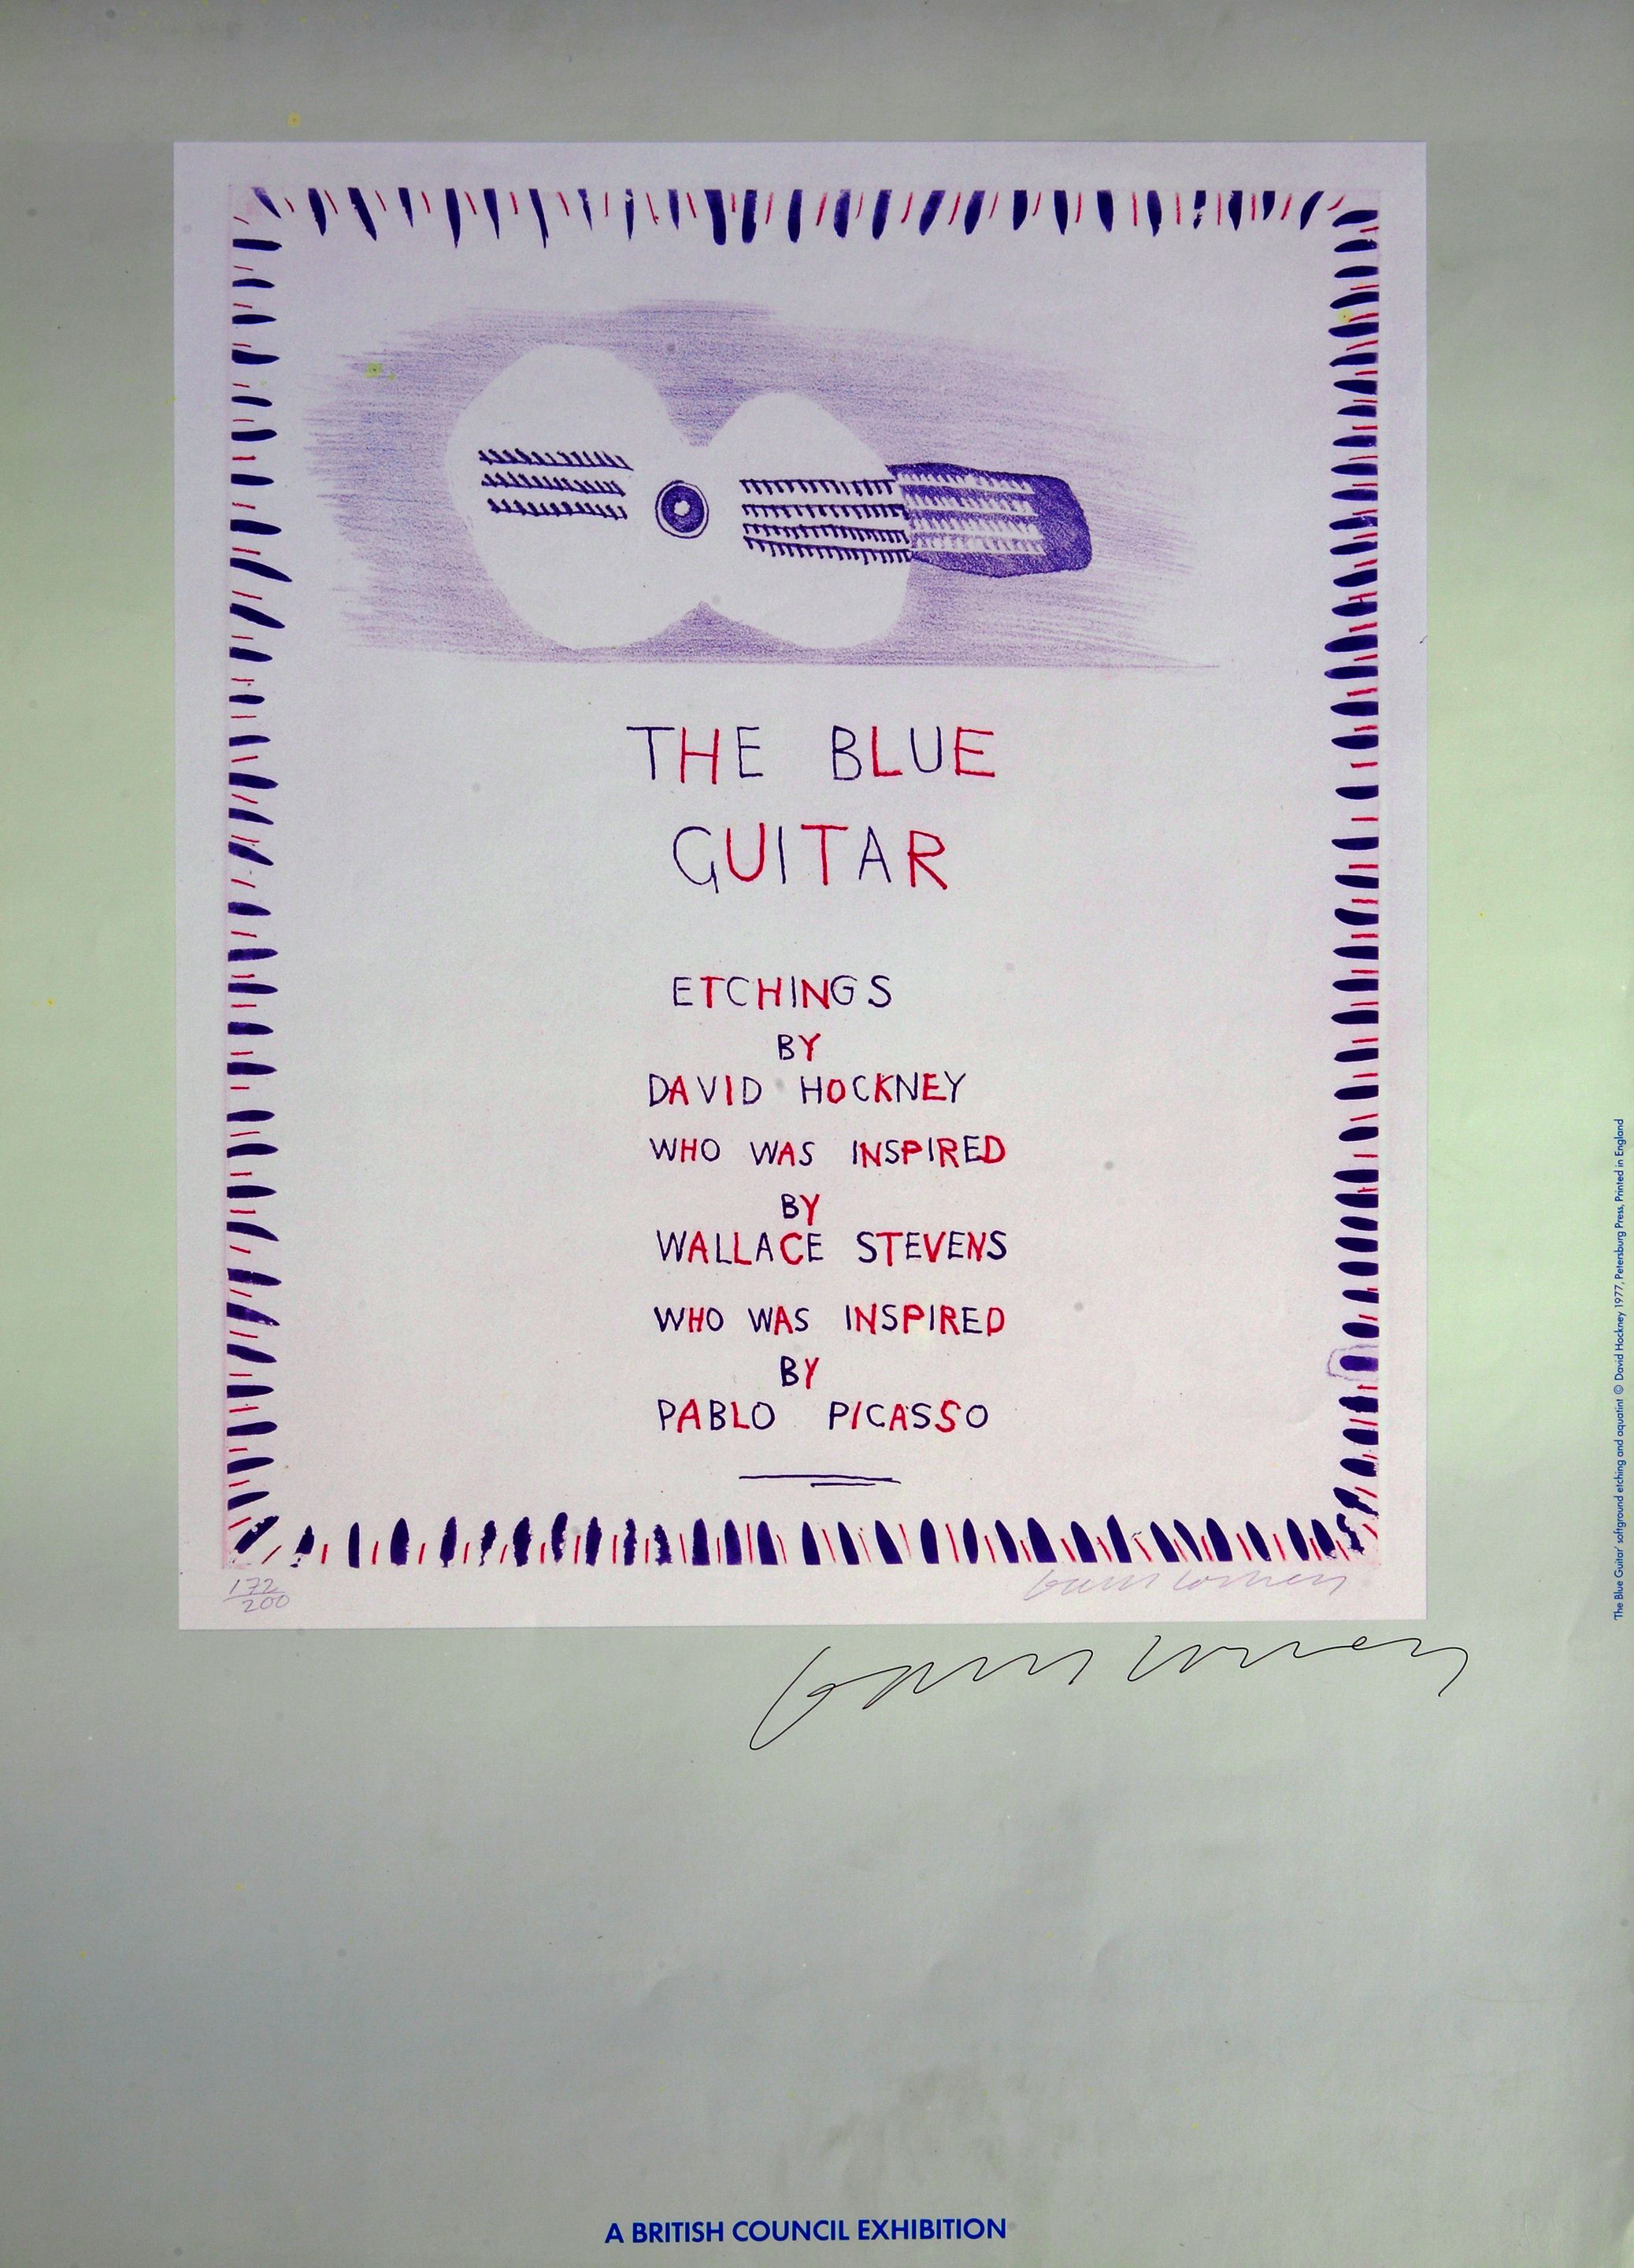 THE BLUE
GUITAR
ETCHINGS
BY
DAVID HOCKNEY
WHO WAS INSPIRED
BY
WALLACE STEVENS
WHO WAS INSPIRED
BY
PABLO PICASSO
172
200
'The Blue Guitar' softground etching and aquatint © David Hockney 1977, Petersburg Press, Printed in England
A BRITISH COUNCIL EXHIBITION